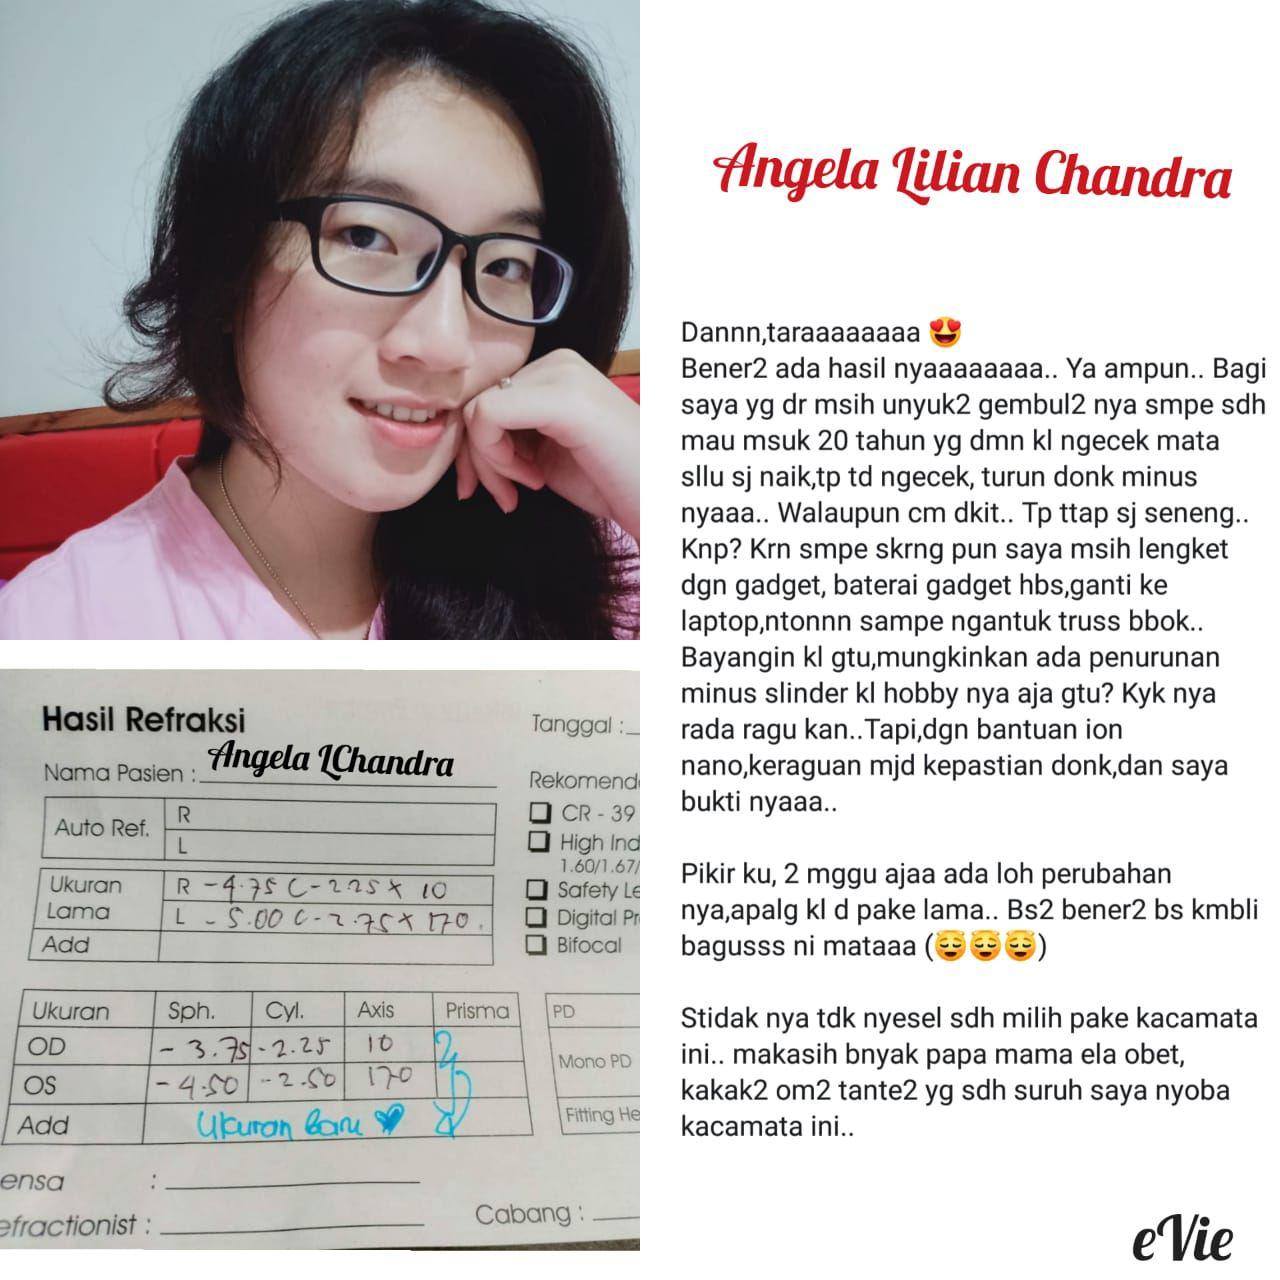 Angela Lilian Chandra
Dannn,taraaaaaaaaa 😍
Bener2 ada hasil nyaaaaaaaaa.. Ya ampun.. Bagi
saya yg dr msih unyuk2 gembul2 nya smpe sdh
mau msuk 20 tahun yg dmn kl ngecek mata
sllu sj naik,tp td ngecek, turun donk minus
nyaaa.. Walaupun cm dkit.. Tp ttap sj seneng..
Knp? Krn smpe skrng pun saya msih lengket
dgn gadget, baterai gadget hbs,ganti ke
laptop,ntonnn sampe ngantuk truss bbok..
Bayangin kl gtu,mungkinkan ada penurunan
minus slinder kl hobby nya aja gtu? Kyk nya
rada ragu kan..Tapi,dgn bantuan ion
nano,keraguan mjd kepastian donk,dan saya
bukti nyaaa..
Pikir ku, 2 mggu ajaa ada loh perubahan
nya,apalg kl d pake lama.. Bs2 bener2 bs kmbli
bagusss ni mataaa (😇😇😇)
Stidak nya tdk nyesel sdh milih pake kacamata
ini.. makasih bnyak papa mama ela obet,
kakak2 om2 tante2 yg sdh suruh saya nyoba
kacamata ini..
eVie
Hasil Refraksi
Tanggal :
Nama Pasien : Angela LChandra
Rekomend
Auto Ref. R
L
CR - 39
High Ind
1.60/1.67/
Ukuran Lama R -4.75 C-2.25 X 10
L -5.00 C-2.75 X 170
Add
Safety Le
Digital Pr
Bifocal
Ukuran Sph. Cyl. Axis Prisma
OD -3.75 -2.25 10
OS -4.50 -2.50 170
Add Ukuran baru
PD
Mono PD
Fitting He
ensa :
efractionist :
Cabang :